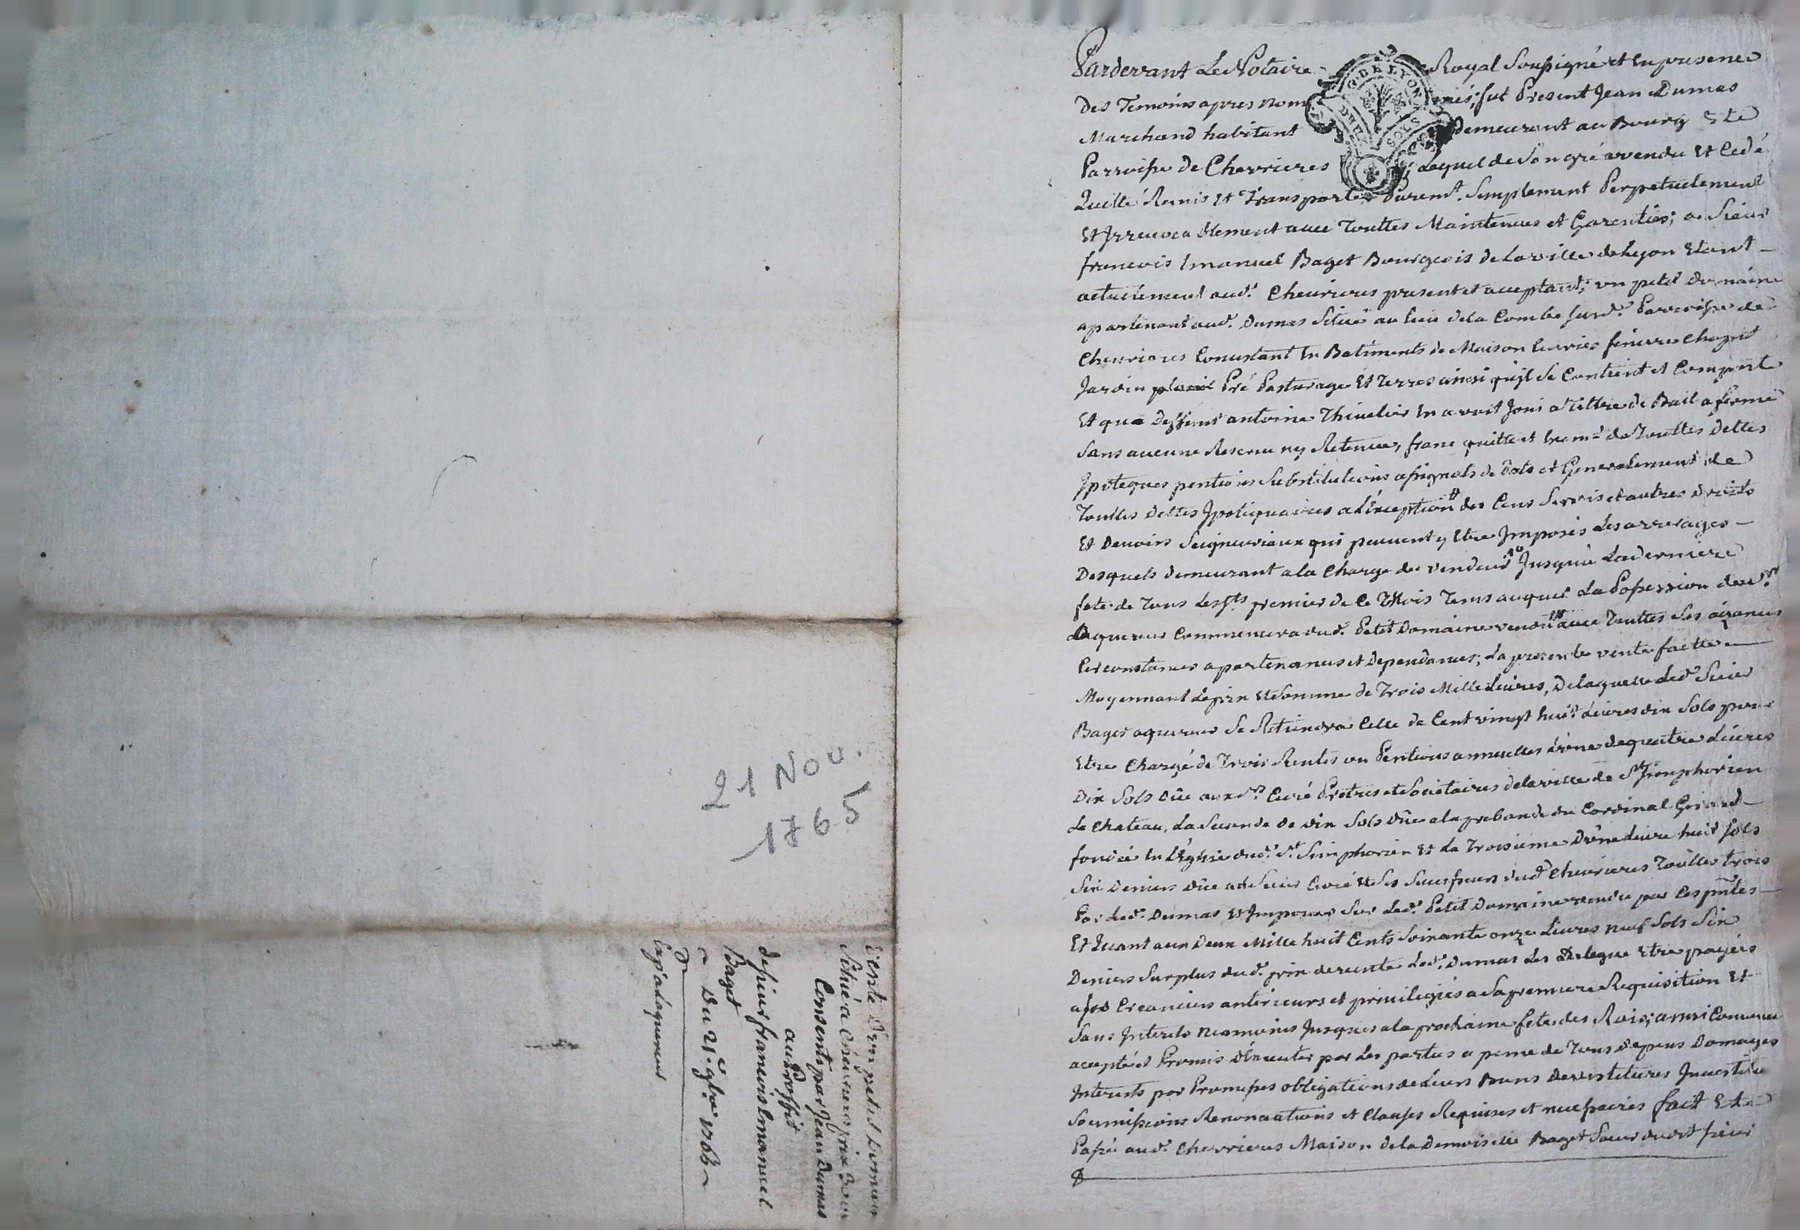 21 Nov.
1765
Vente d'un petit Domaine
Situé a Cheurieres prix 3000#
Consenti par Jean Dumas
au proffit
de sieur francois Emanuel
Baget
Du 21e 9bre 1765
Cop. a laquereur
G. DE LYON
SOLS
Pardevant Le Notaire Royal Soussigné et En presence
Des Temoins apres nommés; fut Present Jean Dumas
Marchand habitant Demeurant au Bourg Et
Parroisse de Chevrieres Lequel de Son gré a vendu Et Cedé
Quitté Remis Et Transporté Purement Simplement Perpetuelement
Et Irrevocablement avec Touttes Maintenues et Garenties; a Sieur
francois Emanuel Baget Bourgeois de la ville de Lyon Etant
actuelement aud. Cheurieres present et acceptant; un petit domaine
apartenant aud. Dumas Situé au lieu de la Combe Susd. Parroisse de
Cheurieres Consistant En Batiments de Maison Ecurie feniere Chapit
Jardin Pré Pasturage Et Terres ainsi qu'jl Se Contient et Comporte
Et que Deffunt antoine Thivelier En avoit Joui a Tiltre de Bail a ferme
Sans aucune Reserve ny Retenue, franc quitte et Exemt de Touttes Dettes
Jpoteques pentions Substitutions assignats de Dots et Generalement de
Touttes Dettes Jpotiquaires a L'exception des Cens Servis et autres droits
Et Devoirs Seigneuriaux qui peuvent y Etre Jmposés Les arrerages
Desquels demeurant a la Charge du vendeur Jusques a La derniere
fete de Tous Les Sts premier de Ce Mois Tems auquel La Possession dud. Sr
aquereur Commencera dud. Petit Domaine vendu avec Touttes Ses aizances
Circonstances apartenances et Dependances; La presente vente faitte
Moyennant Le prix Et Somme de Trois Mille Livres, De laquelle Led. Sieur
Baget aquereur Se Retiendra Celle de Cent vingt huit Livres dix Sols pour
Etre Chargé de Trois Rentes ou Pentions annuelles L'une de quatre Livres
Dix Sols Düe aux Srs Curé Pretres et Societaires de la ville de St Simphorien
Le Chateau, La Seconde de dix Sols Düe a la prebande du Cardinal Girard
fondée En L'Eglise dud. St Simphorien Et La Troisieme D'une Livre huit Sols
Six Deniers Düe au Sieur Curé et Ses Successeurs dud. Cheurieres Touttes trois
Par Led. Dumas Et Jmposées Sur Led. Petit Domaine vendu par Ces pntes
Et Quant aux Deux Mille huit Cents Soixante onze Livres neuf Sols Six
Deniers Surplus dud. prix de vente Led. Dumas Les Delegue Etre payées
a Ses Creanciers anterieurs et privilegiés a Sa premiere Requisition Et
Sans Jnterets Neamoins Jusques a la prochaine fete des Rois; ainsi Convenu
accepté et Promis D'executer par Les parties a peine de Tous Depens Domages
Jnterets par Promesses obligations de Leurs Biens Devestitures Jnvestitures
Soumissions Renonciations et Clauses Requises et necessaires fait Et
Passé aud. Chevrieres Maison de la Demoiselle Baget Soeur dudit Sieur